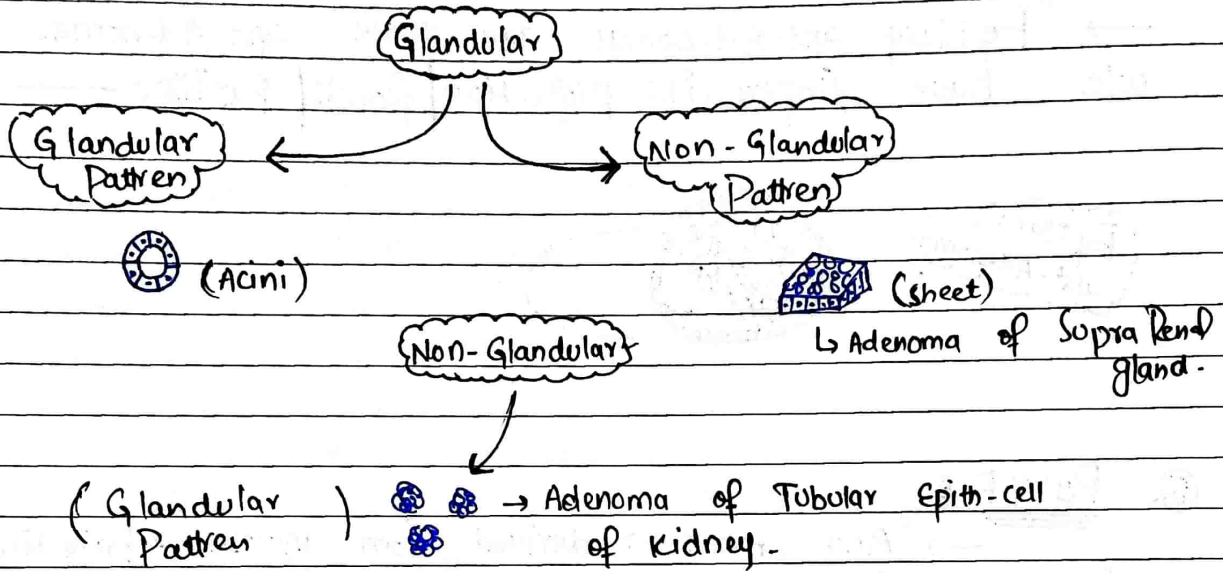 Glandular
Glandular
Pattren
Non-Glandular
Pattren
(Acini)
(sheet)
↳ Adenoma of Supra Renal
gland.
Non-Glandular
(Glandular
Pattren) → Adenoma of Tubular Epith-cell
of Kidney.